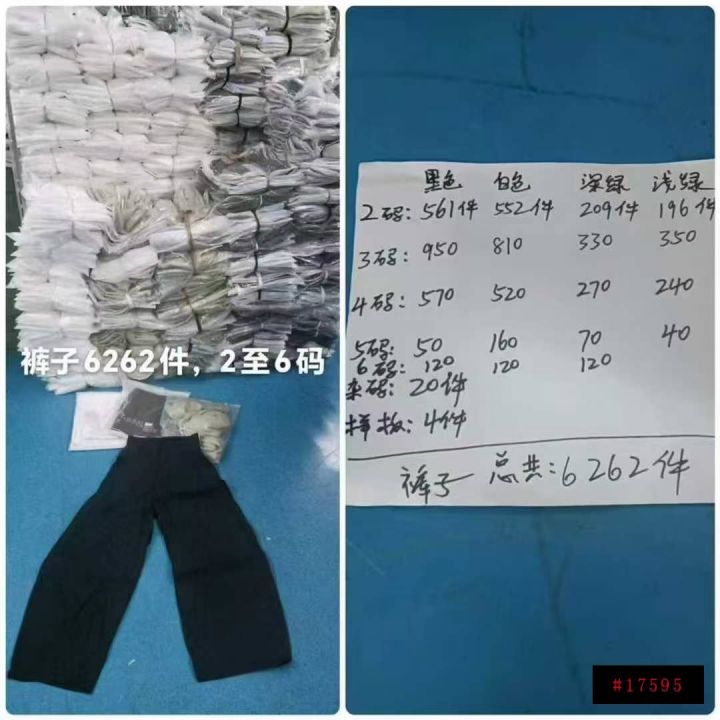 裤子6262件，2至6码
黑色 白色 深绿 浅绿
2码: 561件 552件 209件 196件
3码: 950 810 330 350
4码: 570 520 270 240
5码: 50 160 70 40
6码: 120 120 120
杂码: 20件
样板: 4件
裤子 总共: 6262件
#17595